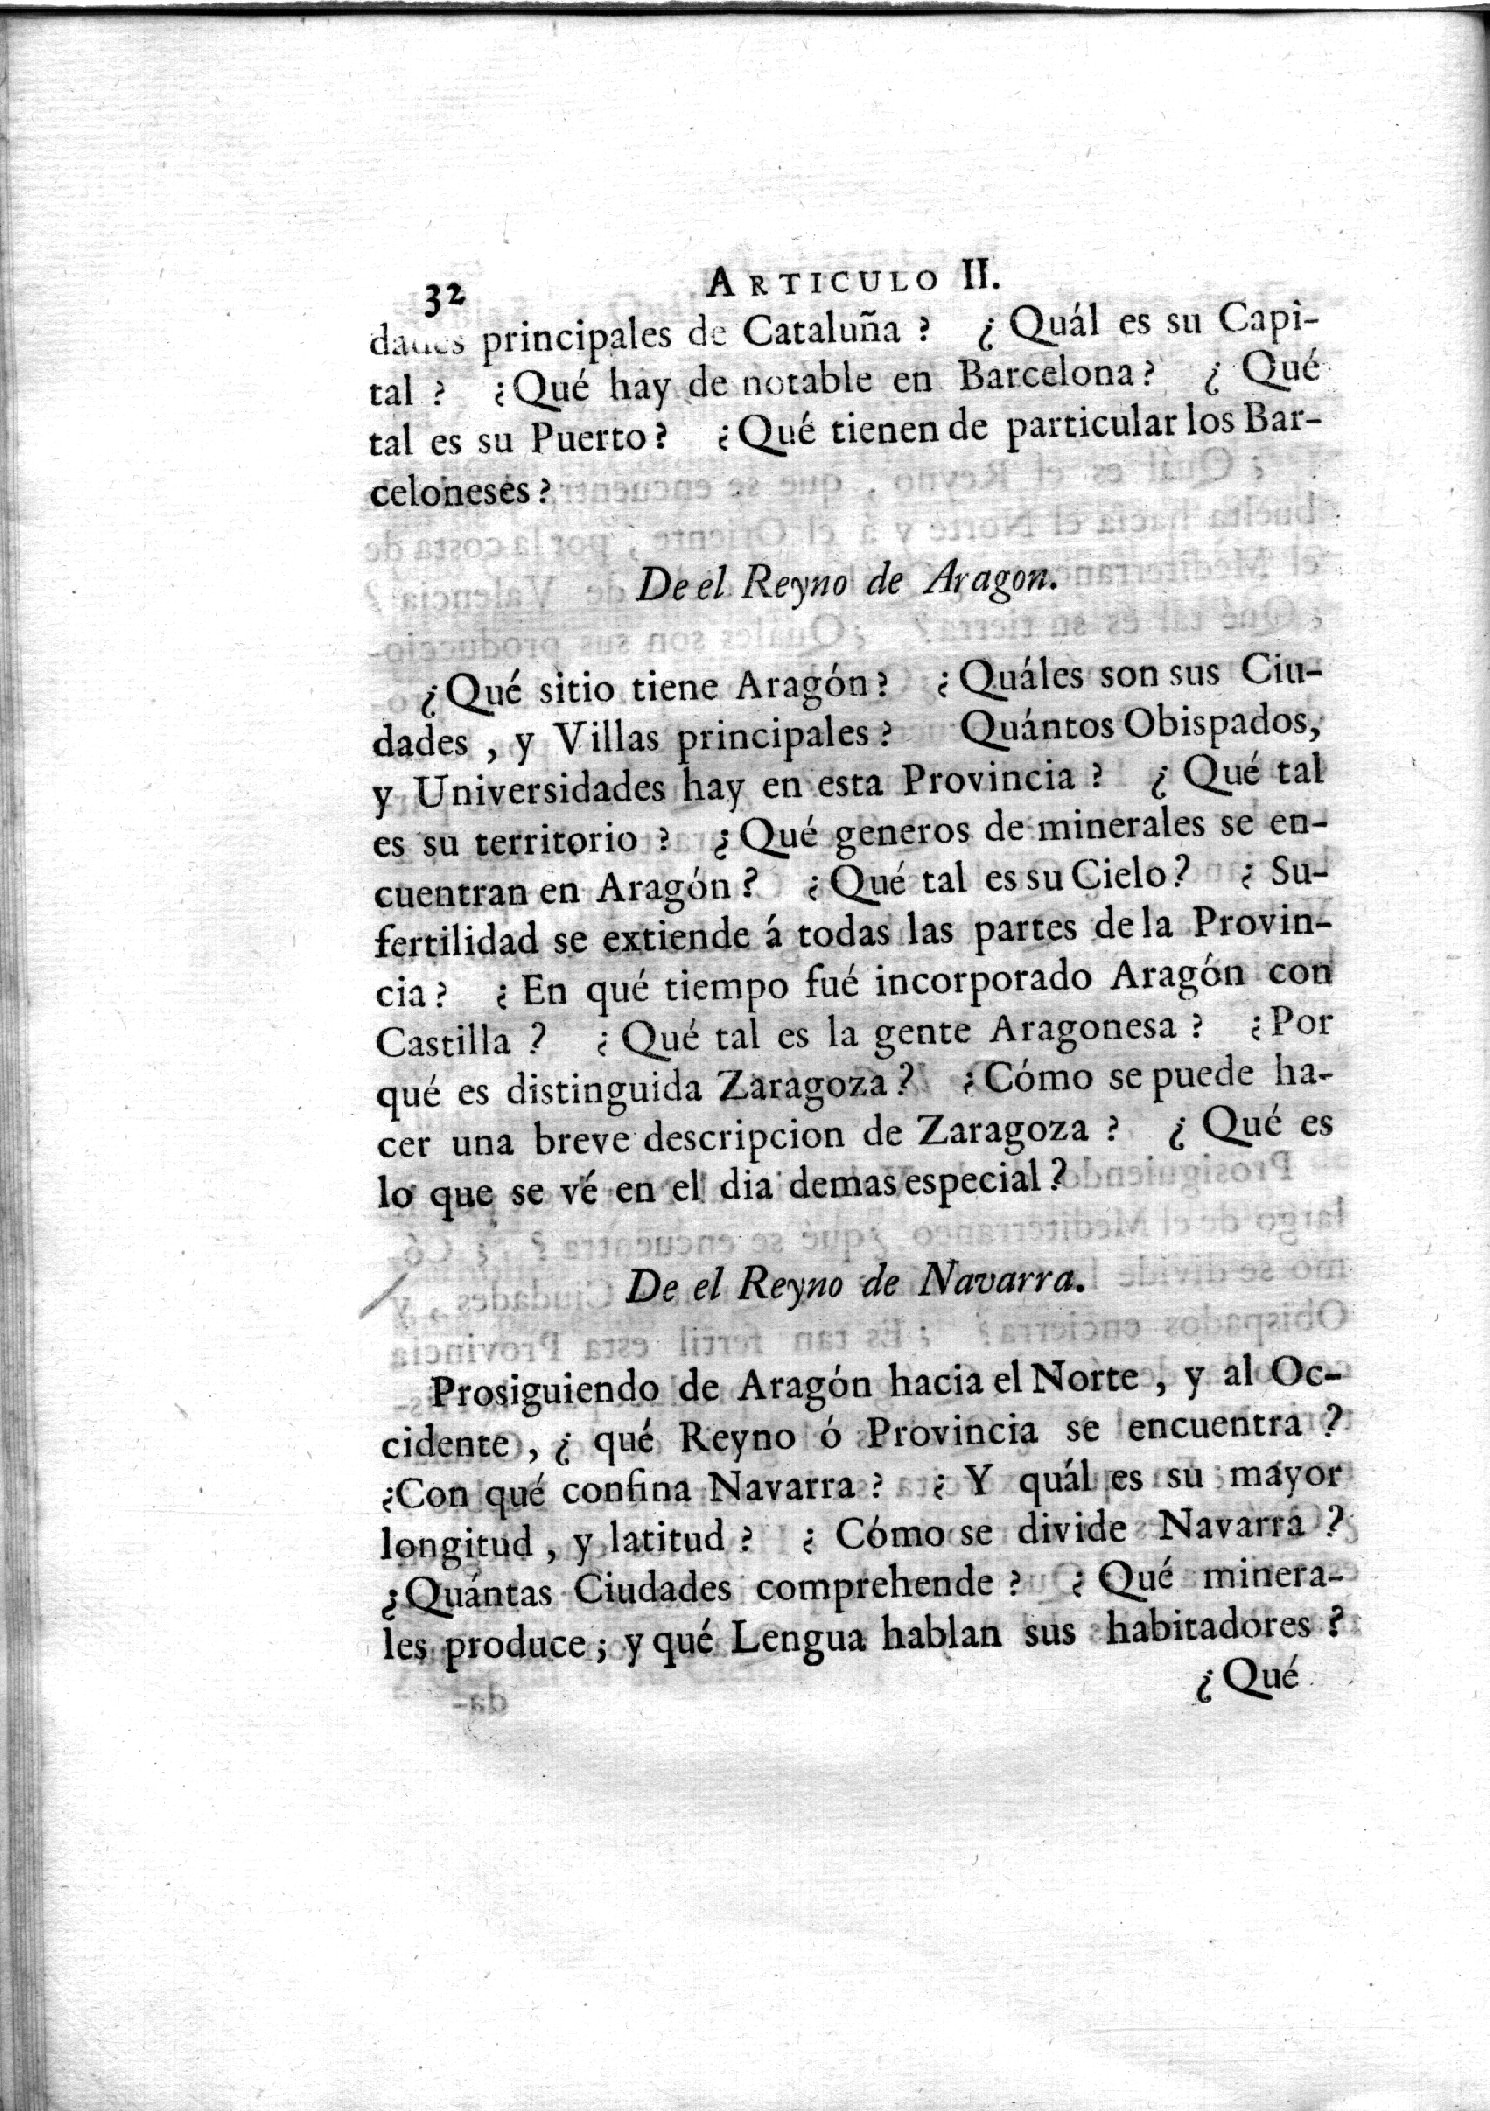 32 ARTICULO II.
dades principales de Cataluña ? ¿Quál es su Capi-
tal ? ¿Qué hay de notable en Barcelona? ¿ Qué
tal es su Puerto? ¿Qué tienen de particular los Bar-
celoneses?
De el Reyno de Aragon.
¿Qué sitio tiene Aragón? ¿Quáles son sus Ciu-
dades , y Villas principales? Quántos Obispados,
y Universidades hay en esta Provincia ? ¿ Qué tal
es su territorio ? ¿Qué generos de minerales se en-
cuentran en Aragón? ¿Qué tal es su Cielo? ¿ Su-
fertilidad se extiende á todas las partes de la Provin-
cia? ¿ En qué tiempo fué incorporado Aragón con
Castilla ? ¿Qué tal es la gente Aragonesa ? ¿Por
qué es distinguida Zaragoza? ¿Cómo se puede ha-
cer una breve descripcion de Zaragoza ? ¿ Qué es
lo que se vé en el dia demas especial?
De el Reyno de Navarra.
Prosiguiendo de Aragón hacia el Norte , y al Oc-
cidente , ¿ qué Reyno ó Provincia se encuentra ?
¿Con qué confina Navarra ? ¿ Y quál es su mayor
longitud , y latitud ? ¿ Cómo se divide Navarra ?
¿Quántas Ciudades comprehende ? ¿ Qué minera-
les produce ; y qué Lengua hablan sus habitadores ?
¿Qué